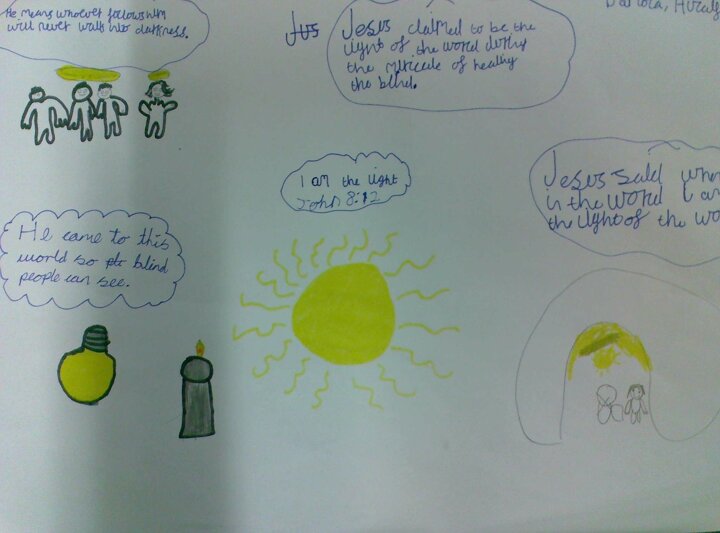 He means whoever follows him
will never walk into darkness.
Jus
Jesus claimed to be the
light of the world during
the miricale of healing
the blind.
I am the light
John 8:12
Jesus said when
in the world I am
the light of the wo
He came to this
world so blind
people can see.